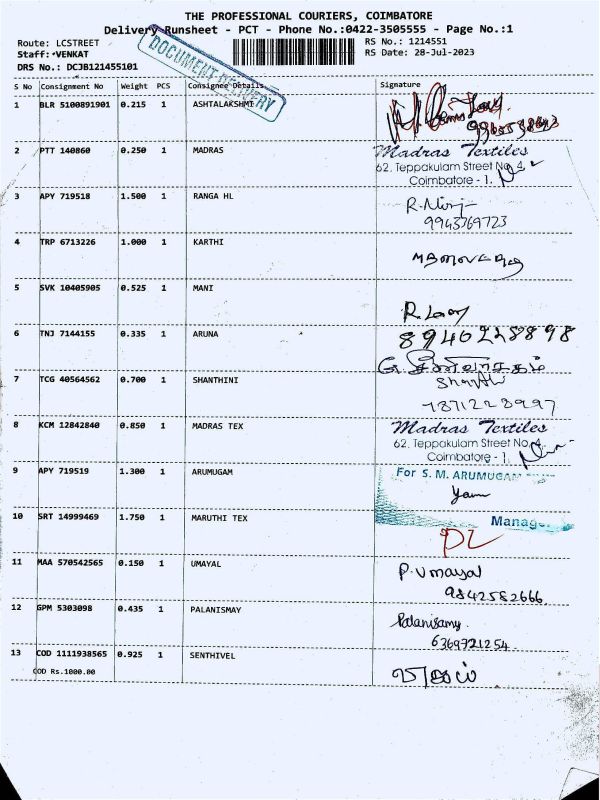 THE PROFESSIONAL COURIERS, COIMBATORE
Delivery Runsheet - PCT - Phone No.:0422-3505555 - Page No.:1
Route: LCSTREET
RS No.: 1214551
Staff: VENKAT
RS Date: 28-Jul-2023
DRS No.: DCJB121455101
DOCUMENT DELIVERY
S No Consignment No Weight PCS Consignee Details Signature
1 BLR 5100891901 0.215 1 ASHTALAKSHMI
2 PTT 140860 0.250 1 MADRAS
Madras Textiles
62, Teppakulam Street No. 4,
Coimbatore - 1.
3 APY 719518 1.500 1 RANGA HL
9943769723
4 TRP 6713226 1.000 1 KARTHI
5 SVK 10405905 0.525 1 MANI
6 TNJ 7144155 0.335 1 ARUNA
8940228898
7 TCG 40564562 0.700 1 SHANTHINI
8 KCM 12842840 0.850 1 MADRAS TEX
Madras Textiles
62, Teppakulam Street No. 4,
Coimbatore - 1.
9 APY 719519 1.300 1 ARUMUGAM
For S. M. ARUMUGAM
10 SRT 14999469 1.750 1 MARUTHI TEX
11 MAA 570542565 0.150 1 UMAYAL
P.Umayal
9842582666
12 GPM 5303098 0.435 1 PALANISMAY
Palanisamy
6369721254
13 COD 1111938565 0.925 1 SENTHIVEL
COD Rs.1000.00